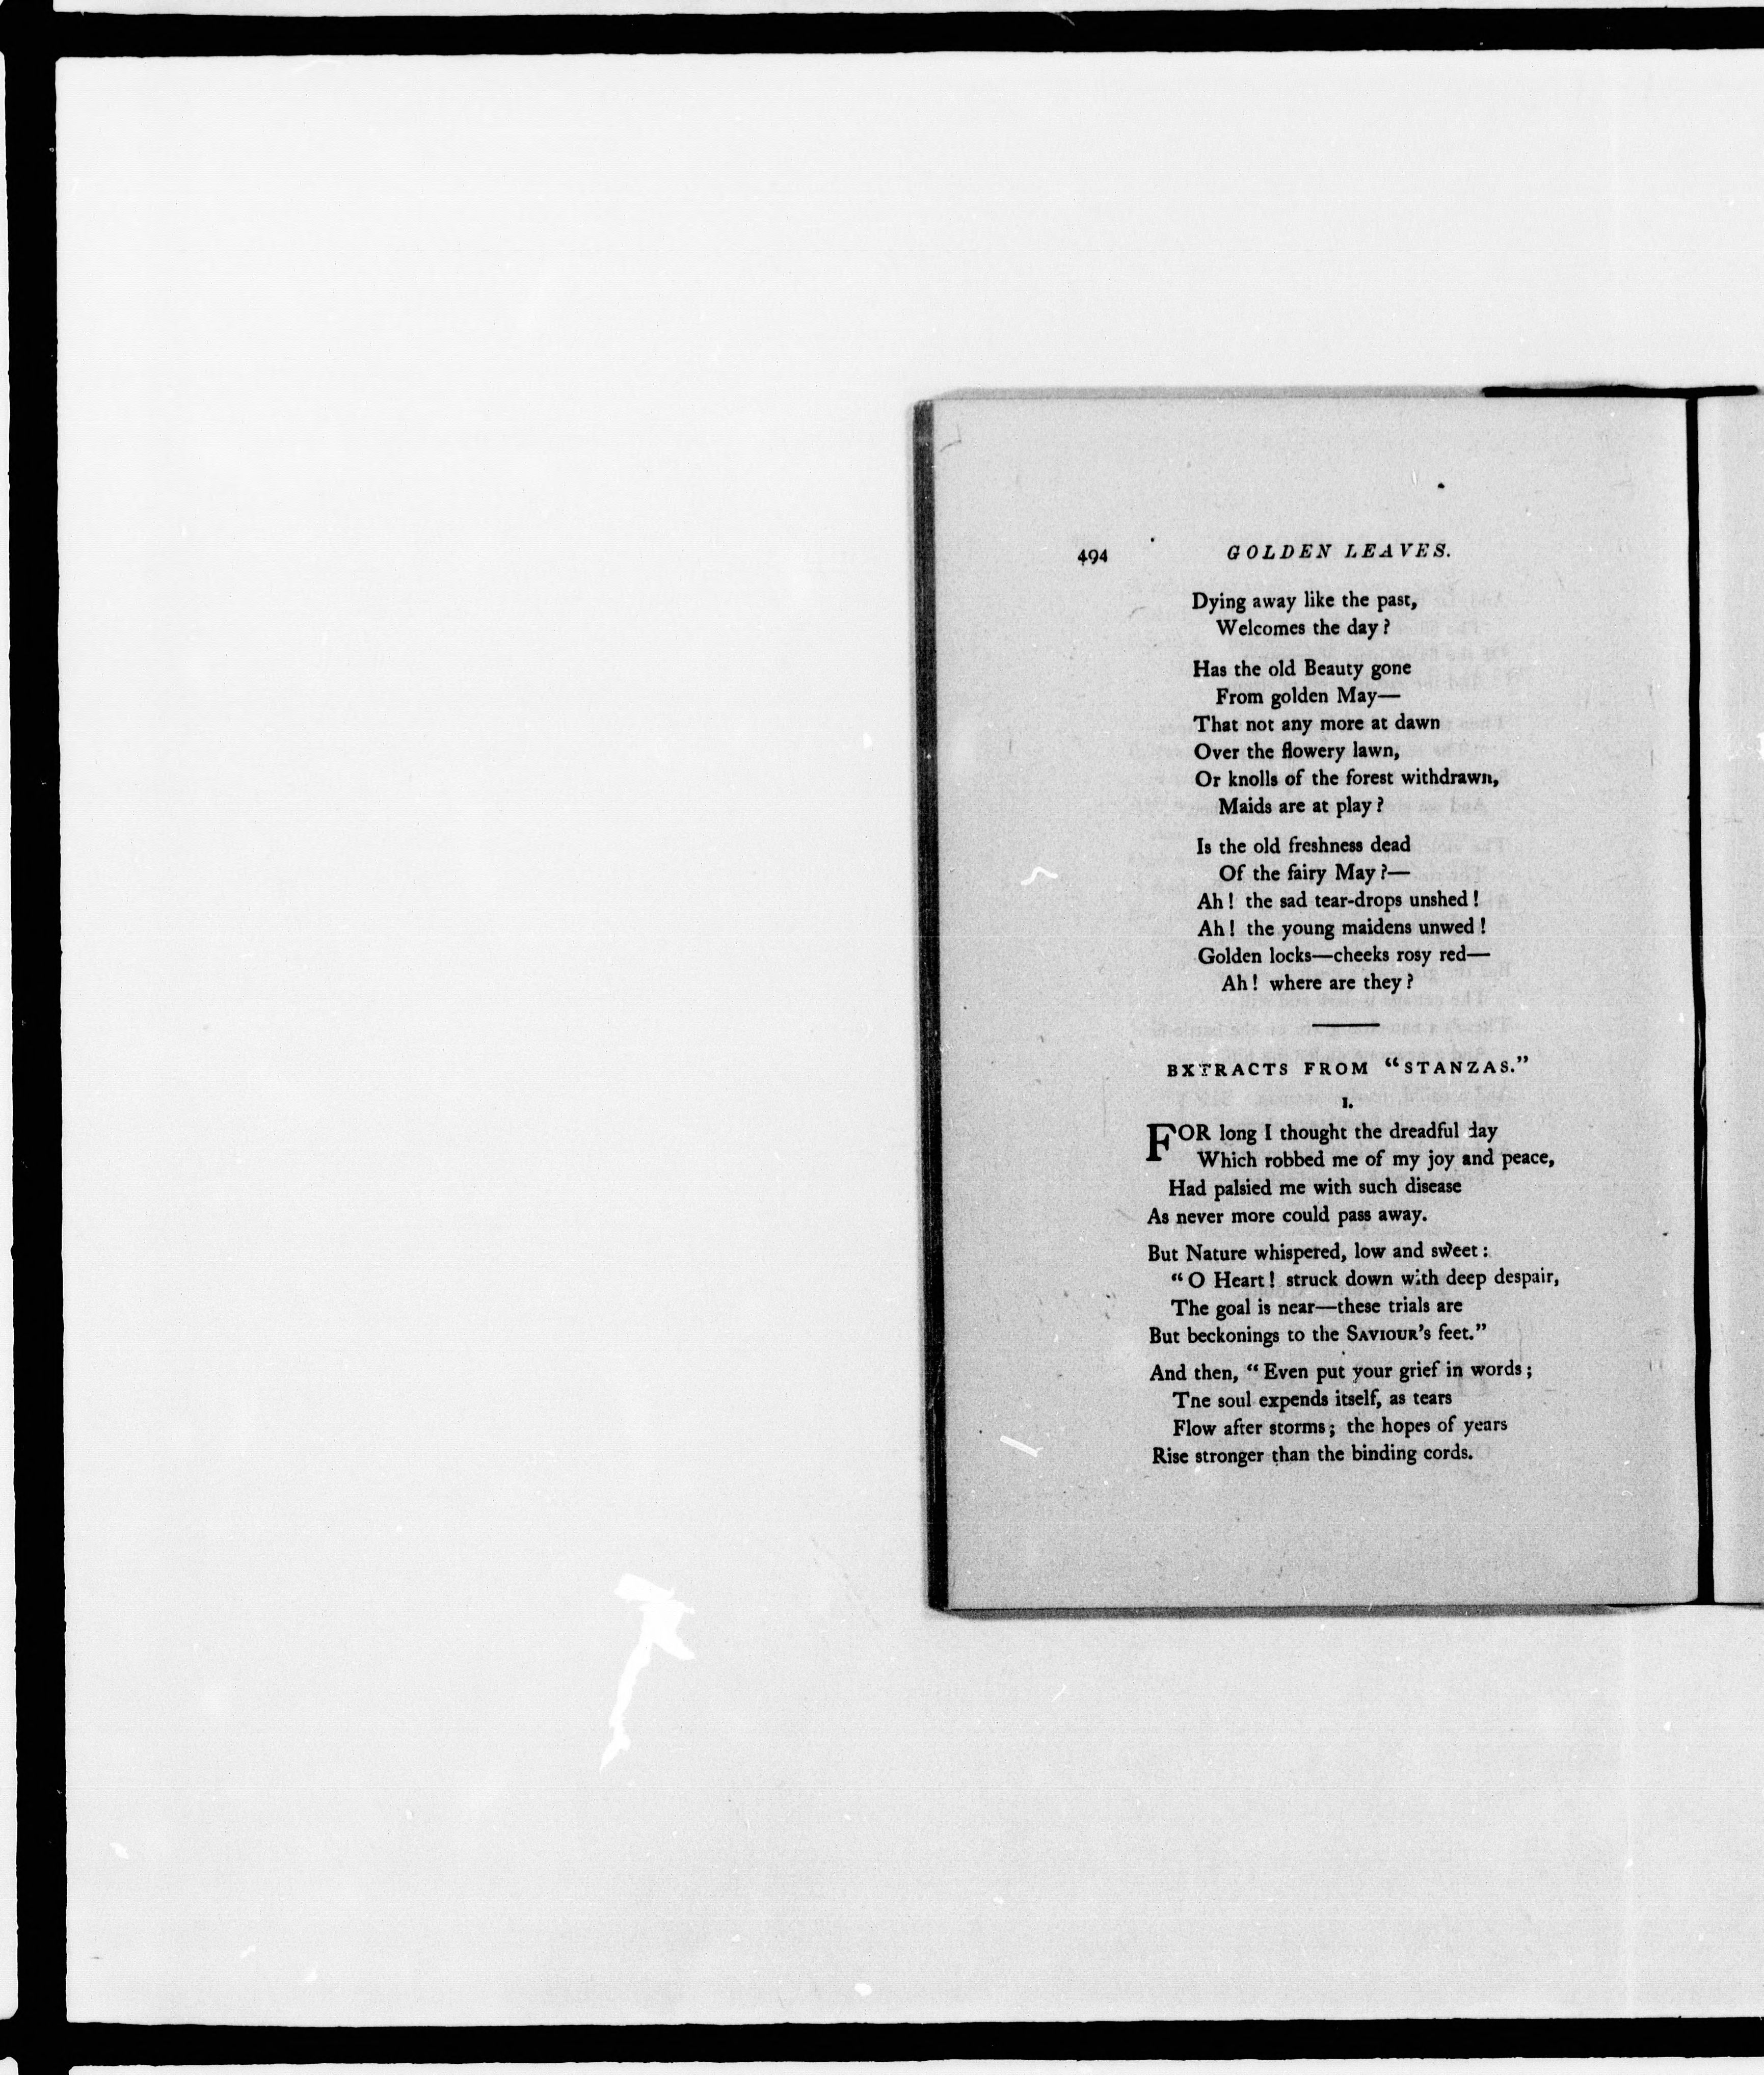 494 GOLDEN LEAVES.
Dying away like the past,
Welcomes the day?
Has the old Beauty gone
From golden May—
That not any more at dawn
Over the flowery lawn,
Or knolls of the forest withdrawn,
Maids are at play?
Is the old freshness dead
Of the fairy May?—
Ah! the sad tear-drops unshed!
Ah! the young maidens unwed!
Golden locks—cheeks rosy red—
Ah! where are they?
EXTRACTS FROM “STANZAS.”
I.
FOR long I thought the dreadful day
Which robbed me of my joy and peace,
Had palsied me with such disease
As never more could pass away.
But Nature whispered, low and sweet:
“O Heart! struck down with deep despair,
The goal is near—these trials are
But beckonings to the SAVIOUR’s feet.”
And then, “Even put your grief in words;
Tne soul expends itself, as tears
Flow after storms; the hopes of years
Rise stronger than the binding cords.